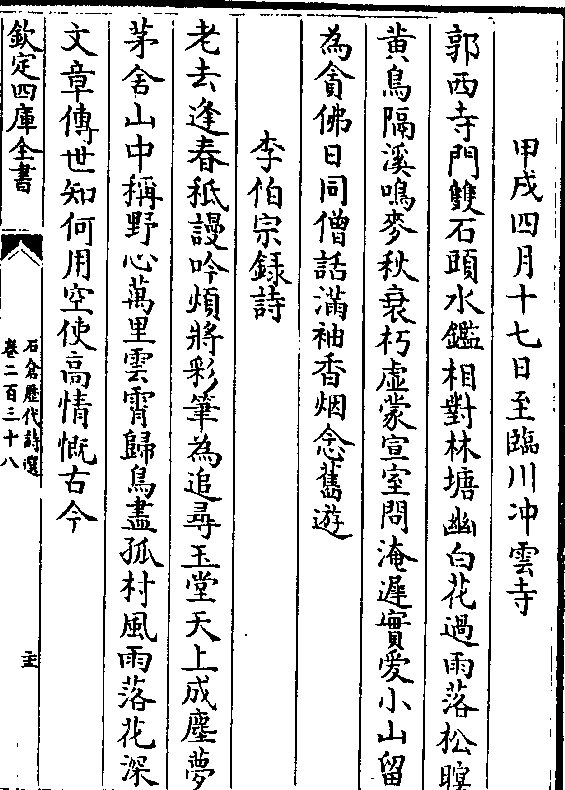 甲戌四月十七日至臨川冲雲寺
郭西寺門雙石頭水鑑相對林塘幽白花過雨落松暝
黄鳥隔溪鳴麥秋衰朽虚蒙宣室問淹遲實愛小山留
為貪佛日同僧話滿袖香烟念舊遊
李伯宗録詩
老去逢春秪謾吟頻將彩筆為追尋玉堂天上成塵夢
茅舍山中稱野心萬里雲霄歸鳥盡孤村風雨落花深
文章傳世知何用空使高情慨古今
欽定四庫全書
石倉歴代詩選
卷二百三十八